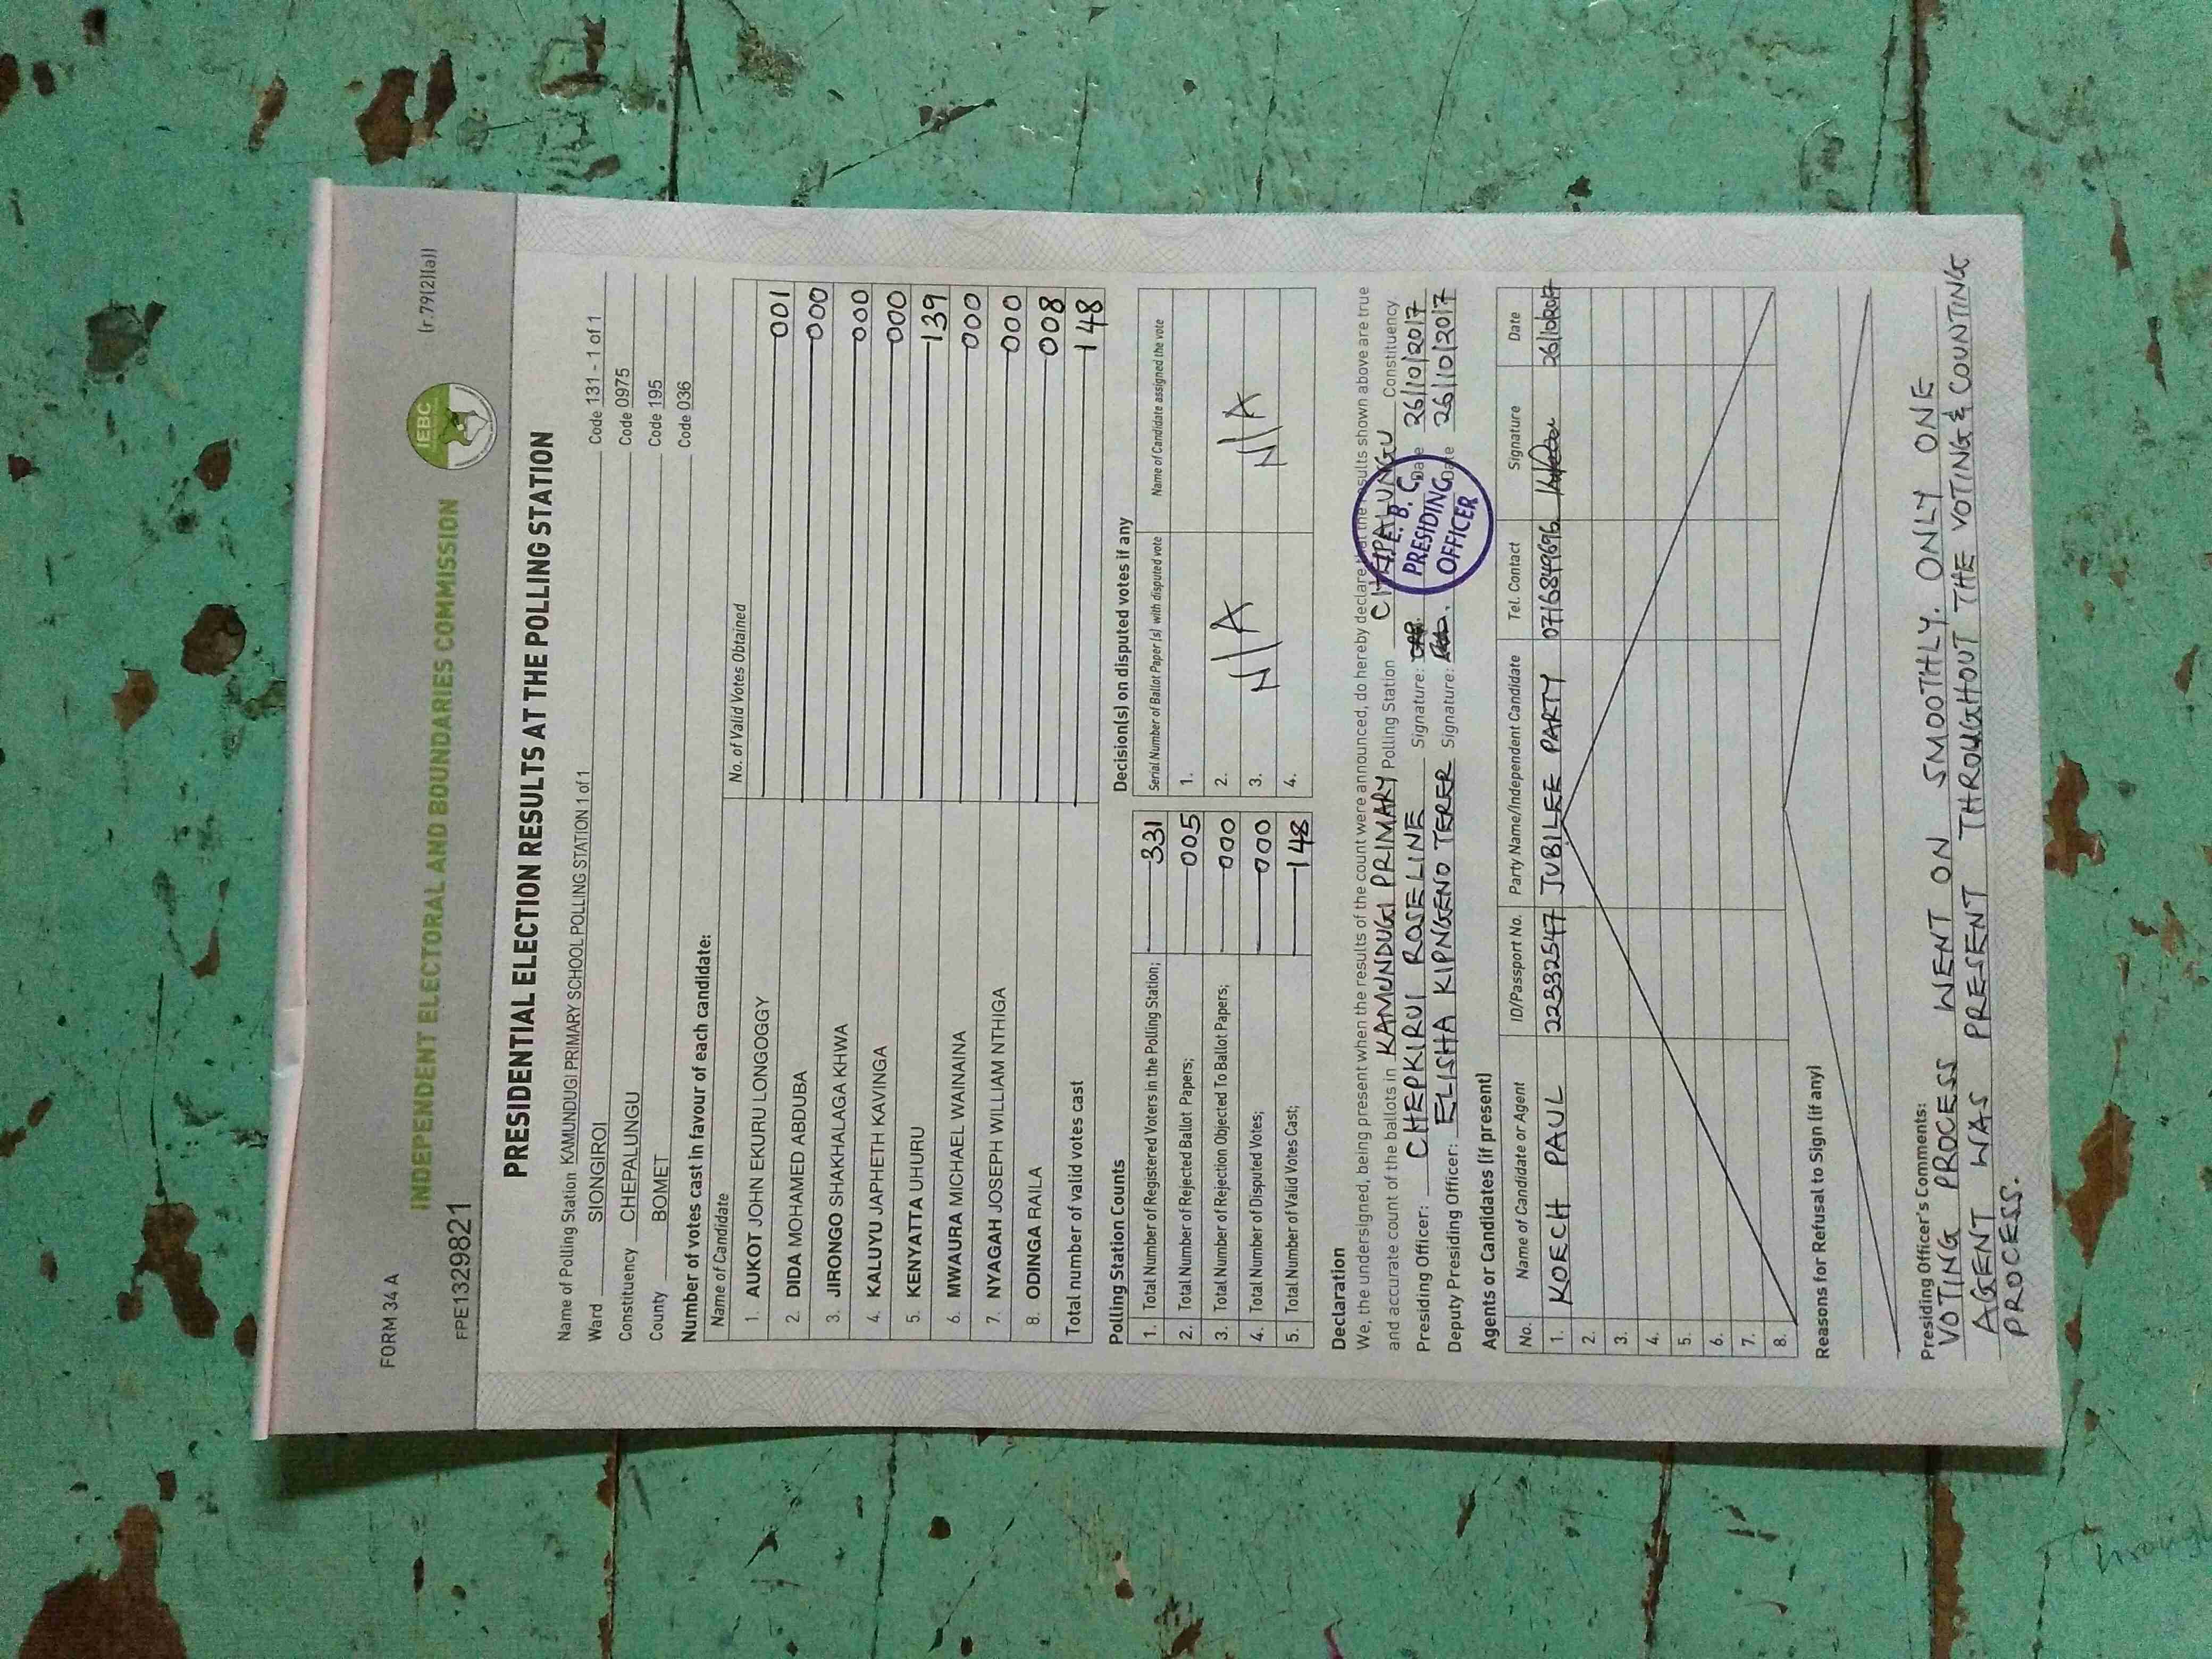 FORM 34 A (r.79(2)(a))
INDEPENDENT ELECTORAL AND BOUNDARIES COMMISSION
IEBC
FPE1329821
PRESIDENTIAL ELECTION RESULTS AT THE POLLING STATION
Name of Polling Station KAMUNDUGI PRIMARY SCHOOL POLLING STATION 1 of 1 Code 131 - 1 of 1
Ward SIONGIROI Code 0975
Constituency CHEPALUNGU Code 195
County BOMET Code 036
Number of votes cast in favour of each candidate:
Name of Candidate No. of Valid Votes Obtained
1. AUKOT JOHN EKURU LONGOGGY 001
2. DIDA MOHAMED ABDUBA 000
3. JIRONGO SHAKHALAGA KHWA 000
4. KALUYU JAPHETH KAVINGA 000
5. KENYATTA UHURU 139
6. MWAURA MICHAEL WAINAINA 000
7. NYAGAH JOSEPH WILLIAM NTHIGA 000
8. ODINGA RAILA 008
Total number of valid votes cast 148
Polling Station Counts
1. Total Number of Registered Voters in the Polling Station; 331
2. Total Number of Rejected Ballot Papers; 005
3. Total Number of Rejection Objected To Ballot Papers; 000
4. Total Number of Disputed Votes; 000
5. Total Number of Valid Votes Cast; 148
Decision(s) on disputed votes if any
Serial Number of Ballot Paper(s) with disputed vote Name of Candidate assigned the vote
1.
2. N/A N/A
3.
4.
Declaration
We, the undersigned, being present when the results of the count were announced, do hereby declare that the results shown above are true
and accurate count of the ballots in KAMUNDUGI PRIMARY Polling Station Constituency
Presiding Officer: CHEPKIRUI ROSELINE Signature: Date 26/10/2017
Deputy Presiding Officer: ELISHA KIPNGENO TERER Signature: Date 26/10/2017
I.E.B.C.
PRESIDING
OFFICER
Agents or Candidates (if present)
No. Name of Candidate or Agent ID/Passport No. Party Name/Independent Candidate Tel. Contact Signature Date
1. KOECH PAUL 22332547 JUBILEE PARTY 0716849696 26/10/2017
2.
3.
4.
5.
6.
7.
8.
Reasons for Refusal to Sign (if any)
Presiding Officer's Comments:
VOTING PROCESS WENT ON SMOOTHLY. ONLY ONE
AGENT WAS PRESENT THROUGHOUT THE VOTING & COUNTING
PROCESS.